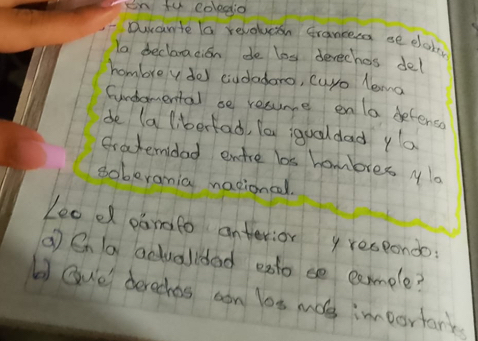 en tu colegio
Durante la revolución francesa se elabor
la declaración de los derechos del
hombre y del ciudadano, cuyo lema
fundamental se resume en la defensa
de la libertad, la igualdad y la
fraternidad entre los hombres y la
soberania nacional.
Leo el párrafo anterior y respondo:
a) En la actualidad esto se cumple?
b) Qué derechos son los más importantes